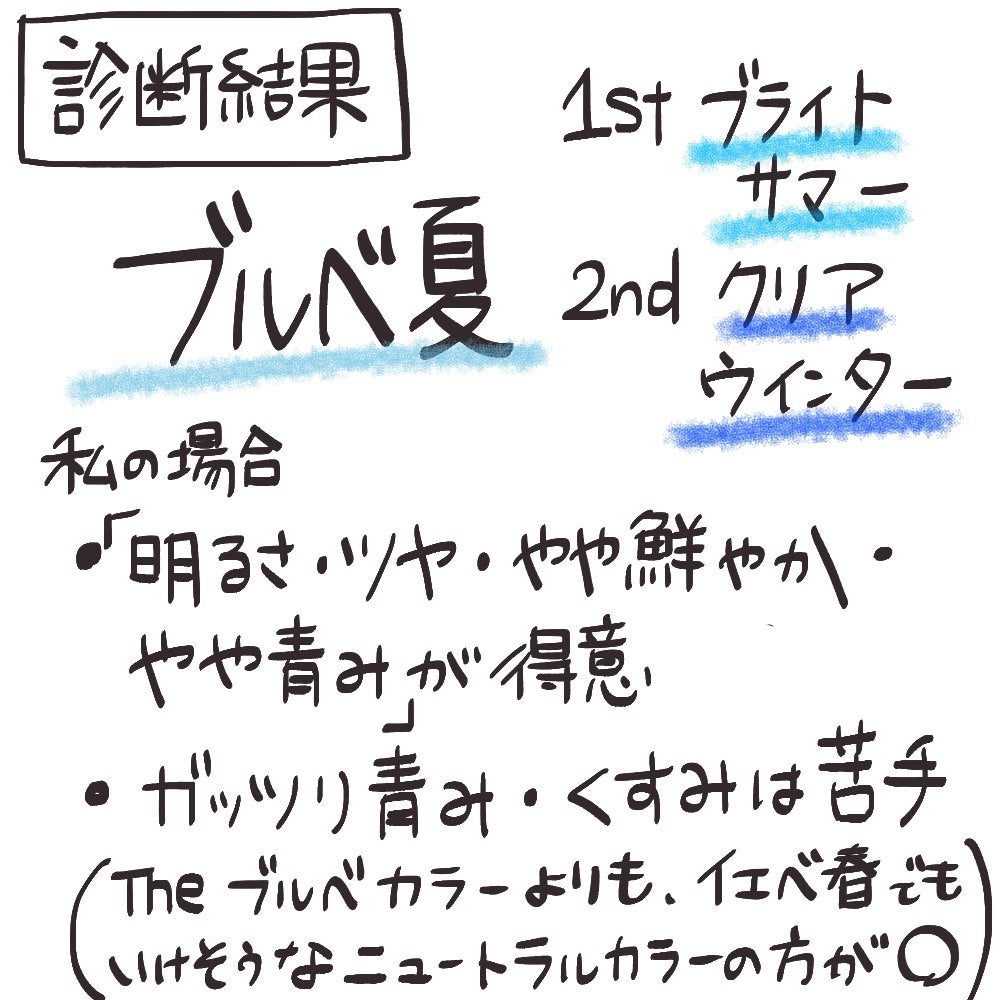 診断結果
ブルベ夏
1st ブライト
サマー
2nd クリア
ウインター
私の場合
・「明るさ・ツヤ・やや鮮やか・
やや青み」が得意
・ガッツリ青み・くすみは苦手
(The ブルベカラーよりも、イエベ春でも
いけそうなニュートラルカラーの方が〇)